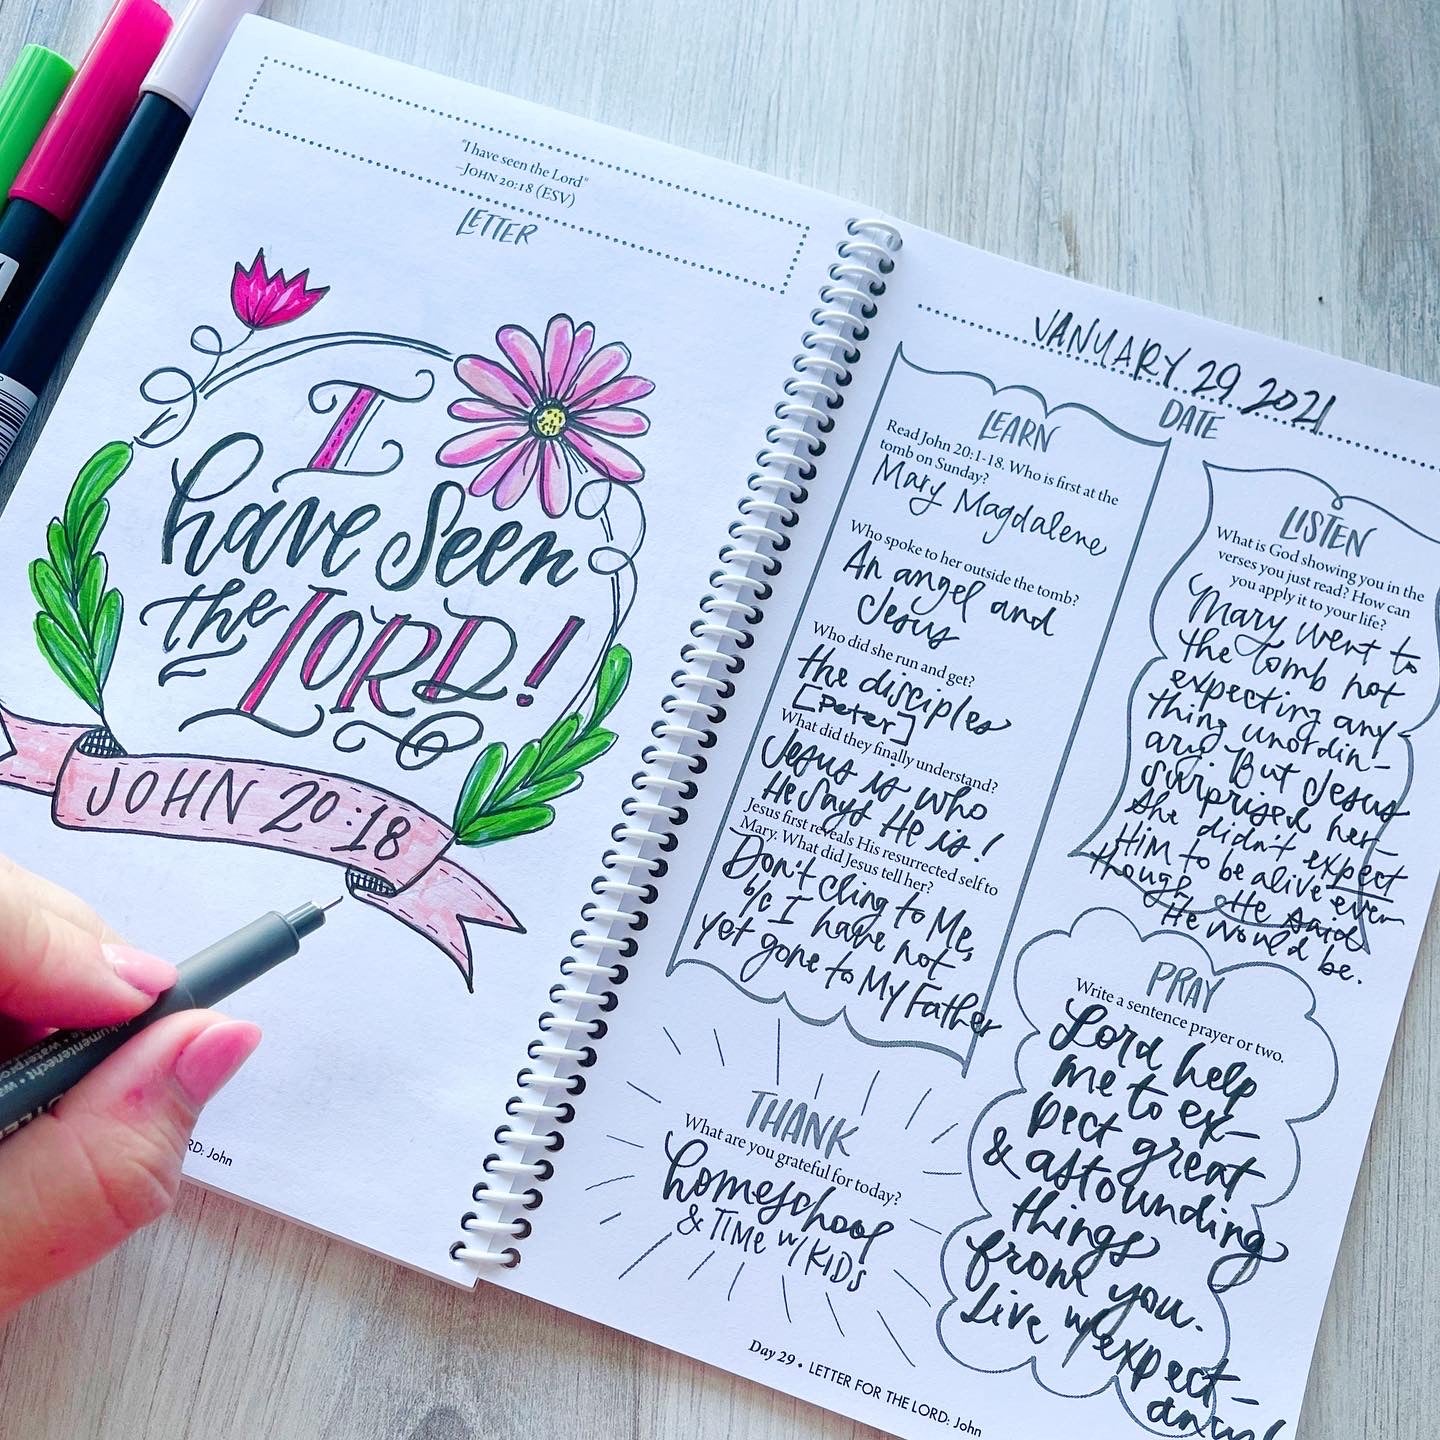 "I have seen the Lord"
–JOHN 20:18 (ESV)
LETTER
I
have seen
the LORD!
JOHN 20:18
RD: John
JANUARY 29 2021
DATE
LEARN
Read John 20:1-18. Who is first at the
tomb on Sunday?
Mary Magdalene
Who spoke to her outside the tomb?
An angel and
Jesus
Who did she run and get?
the disciples
[Peter]
What did they finally understand?
Jesus is who
He says He is!
Jesus first reveals His resurrected self to
Mary. What did Jesus tell her?
Don't cling to Me,
b/c I have not
yet gone to My Father
LISTEN
What is God showing you in the
verses you just read? How can
you apply it to your life?
Mary went to
the tomb not
expecting any
thing unordin-
ary. But Jesus
surprised her—
she didn't expect
Him to be alive even
though He said
He would be.
THANK
What are you grateful for today?
homeschool
& TIME w/ KIDS
PRAY
Write a sentence prayer or two.
Lord help
me to ex-
pect great
& astounding
things
from you.
Live w/ expect-
Day 29 • LETTER FOR THE LORD: John
dokumentenecht • waterpro